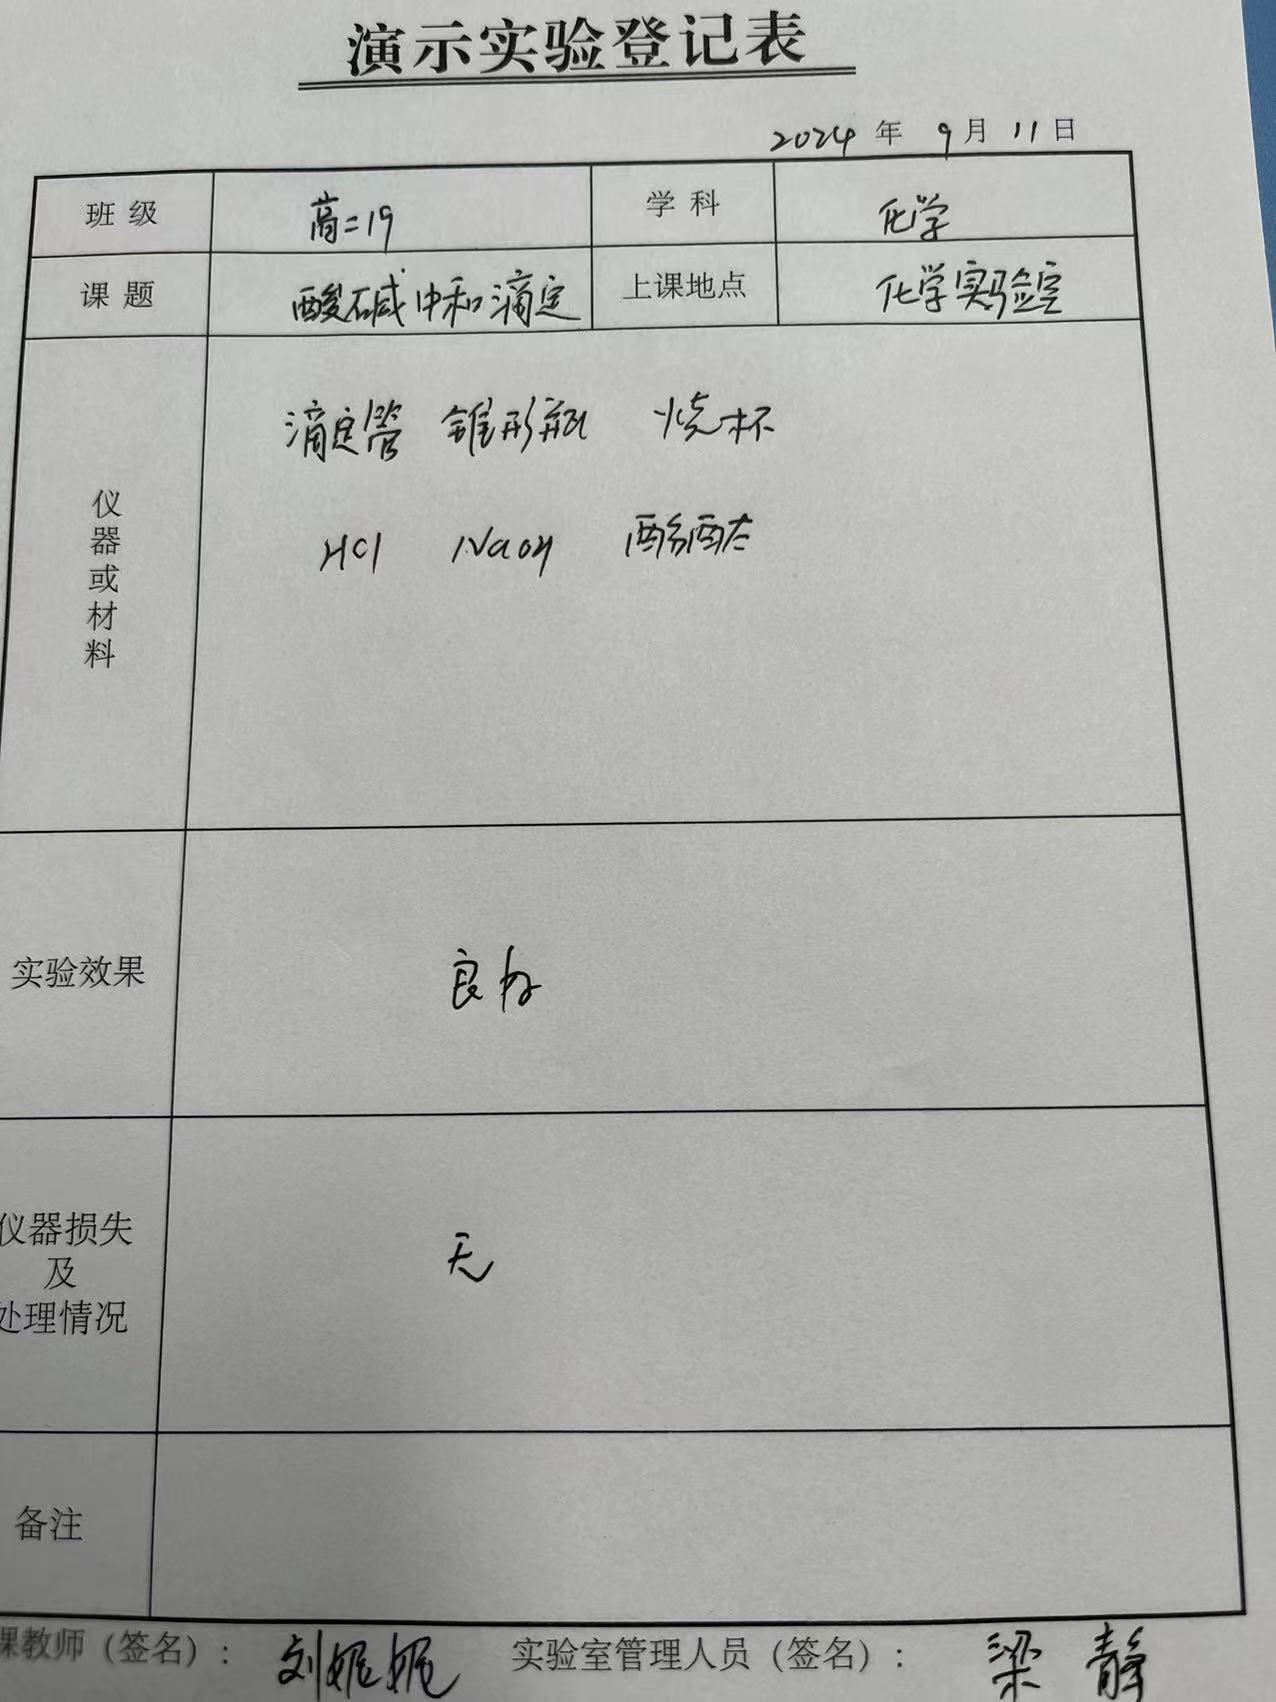 演示实验登记表
2024 年 9 月 11 日
班 级 高二19 学 科 化学
课 题 酸碱中和滴定 上课地点 化学实验室
仪器或材料
滴定管 锥形瓶 烧杯
HCl NaOH 酚酞
实验效果 良好
仪器损失
及
处理情况
无
备注
课教师（签名）: 刘妮妮 实验室管理人员（签名）: 梁静